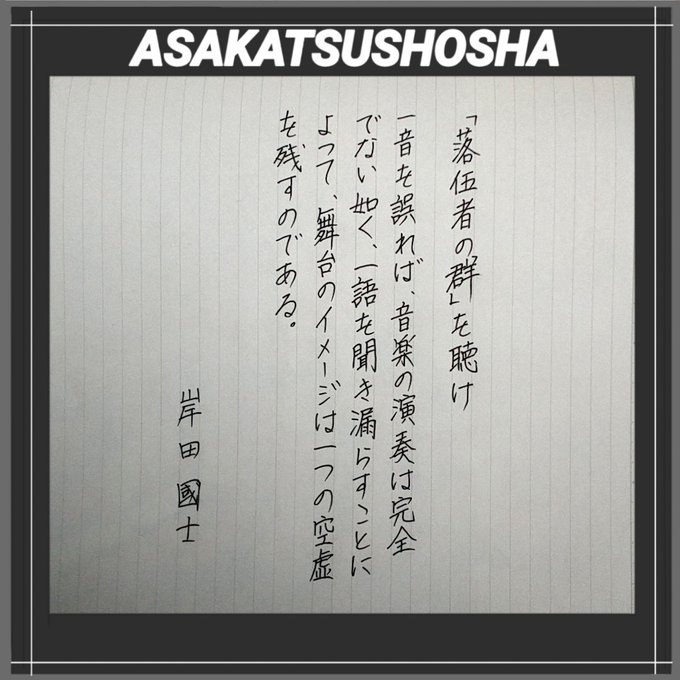 ASAKATSUSHOSHA
「落伍者の群」を聴け
一音を誤れば、音楽の演奏は完全
でない如く、一語を聞き漏らすことに
よって、舞台のイメージは一つの空虚
を残すのである。
岸田國士